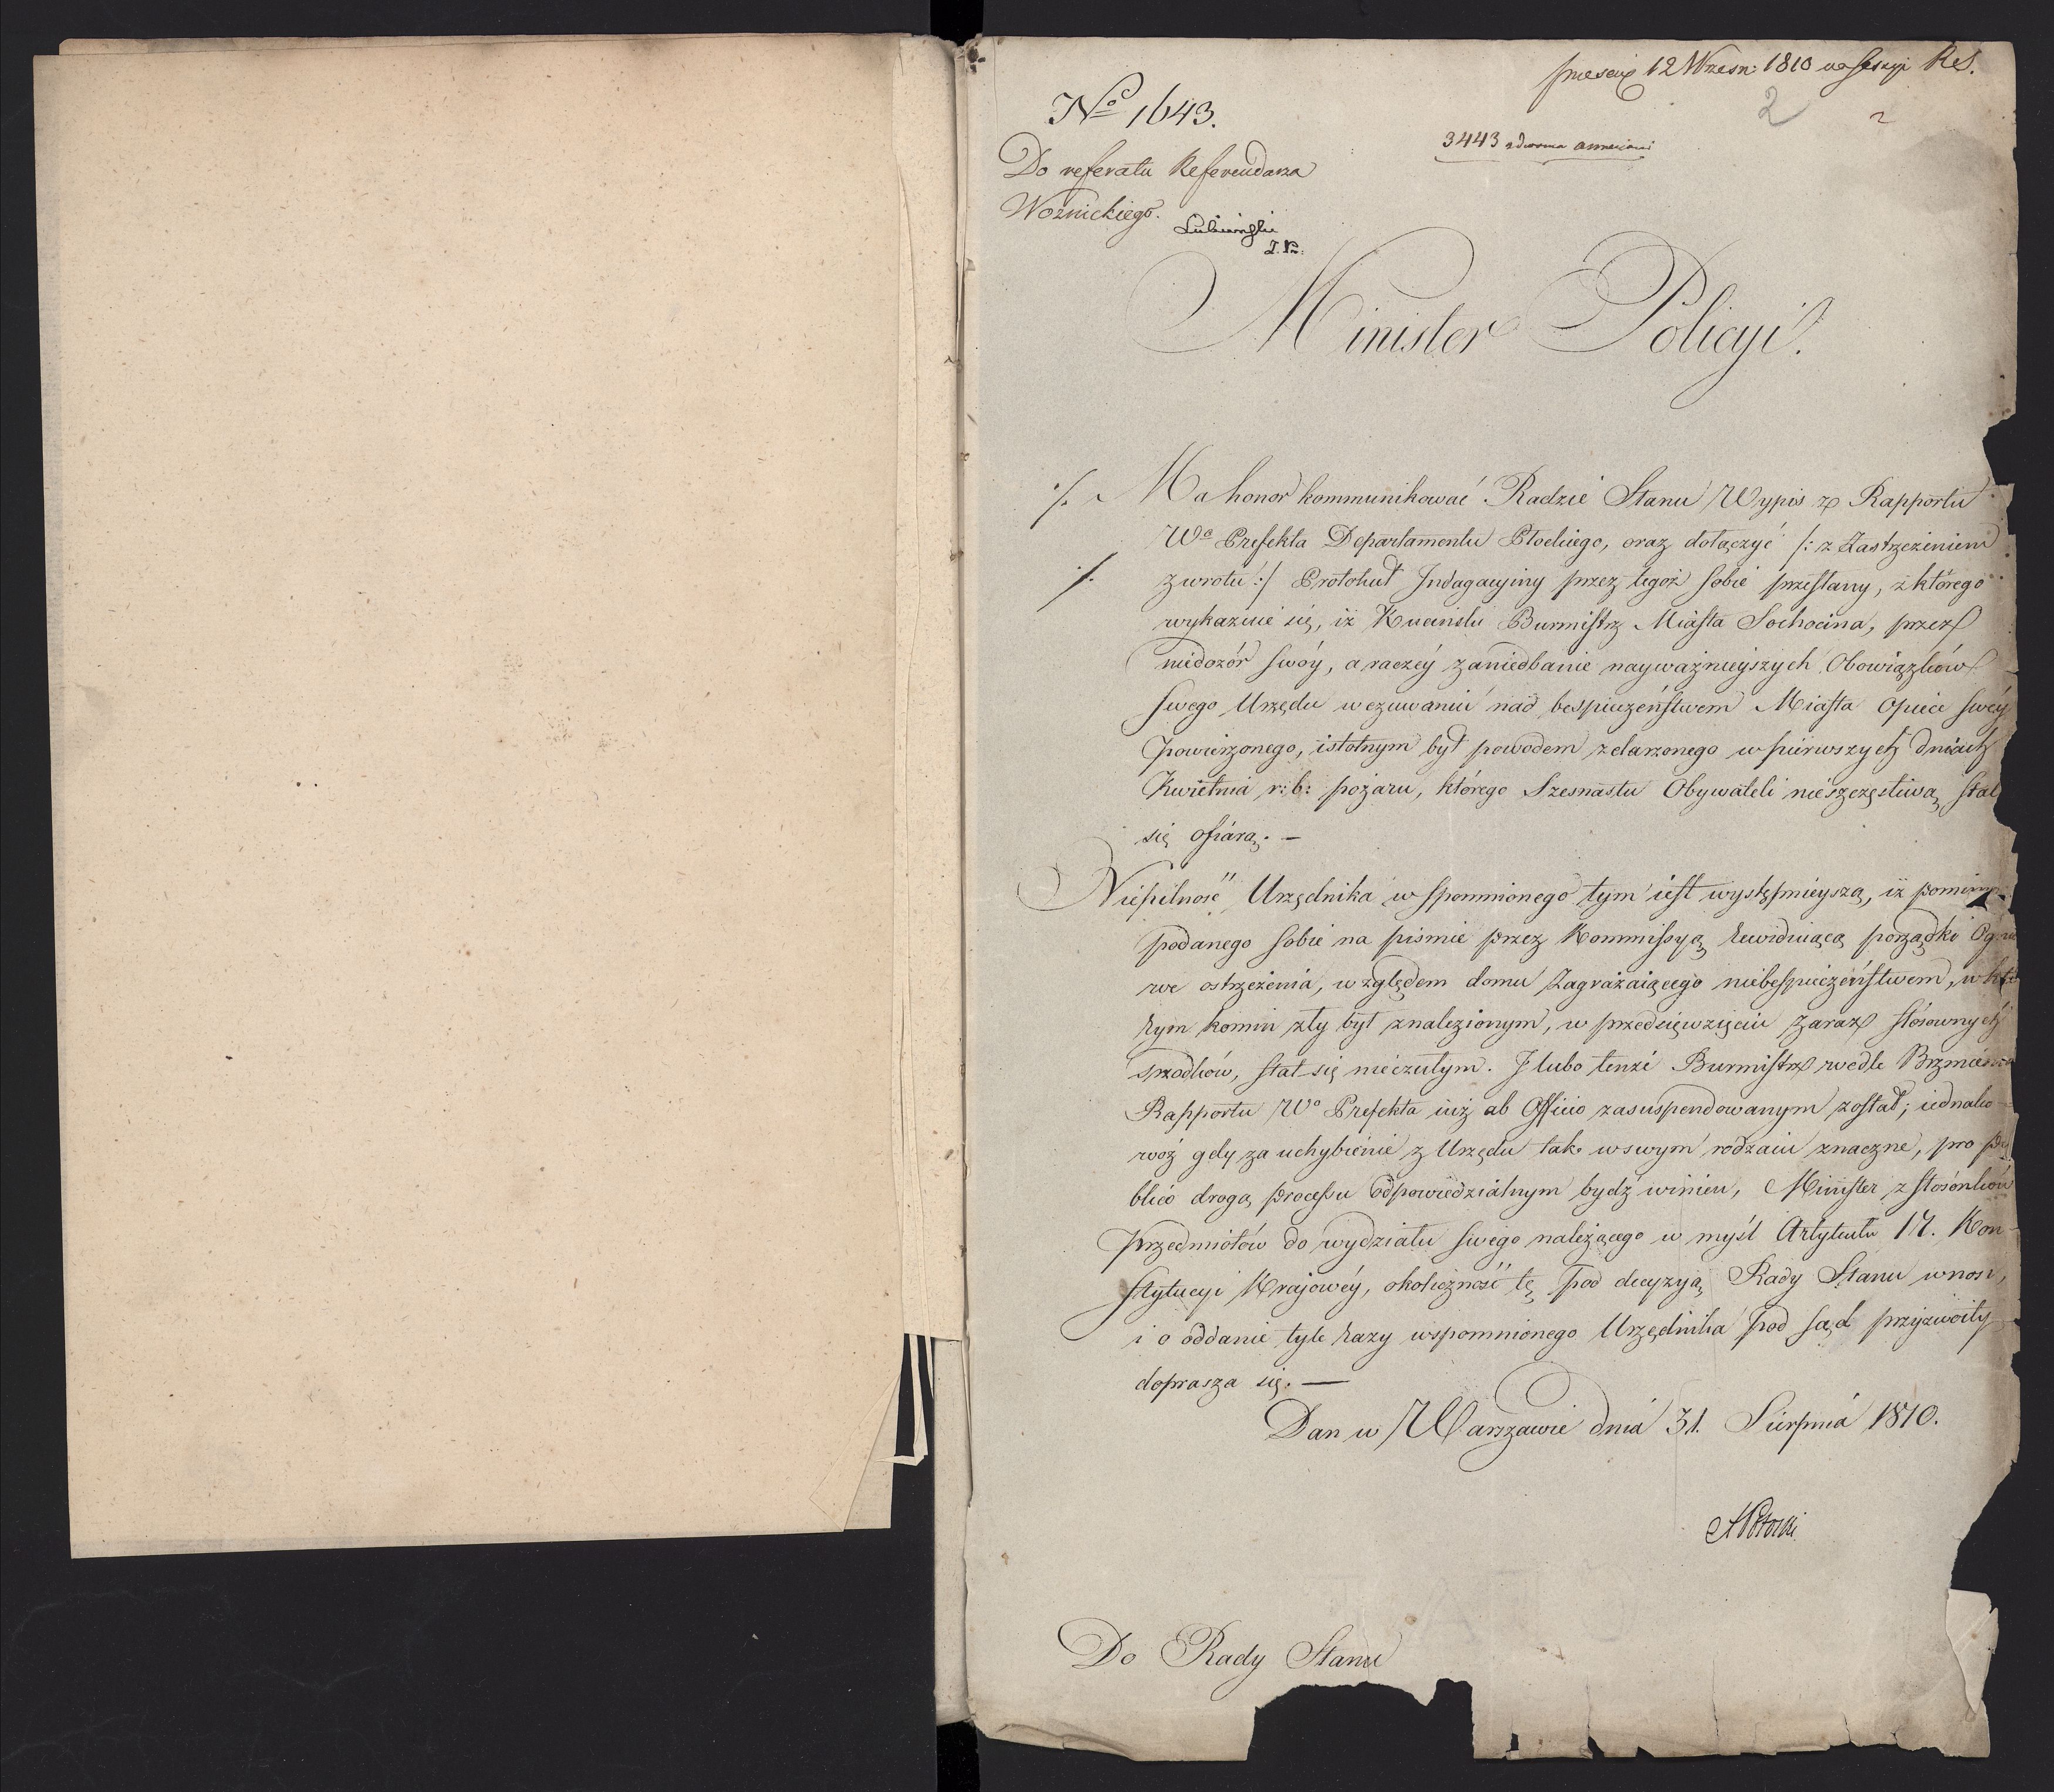 12 Wrzesn: 1810 na Sessyi R.S.
2
2
No 1643.
3443 z dwoma annexami
Do referatu Referendarza
Woznickiego.
Minister Policyi.
Ma honor kommunikować Radzie Stanu Wypis z Rapportu
Wo Prefekta Departamentu Płockiego, oraz dołączyć /: z Zastrzeżeniem
zwrotu :/ Protokuł Indagacyiny przez tegoż sobie przesłany, z którego
wykazuie się, iż Kucinski Burmistrz Miasta Sochocina, przez
niedozór swóy, a raczéy zaniedbanie nayważnieyszych Obowiązków
swego Urzędu w czuwaniu nad bespieczeństwem Miasta Opiece swéy
powierzonego, istotnym był powodem zdarzonego w pierwszych dniach
Kwietnia r: b: pożaru, którego Szesnastu Obywateli nieszczęśliwą stał
się ofiarą. —
Niepilność Urzędnika wspomnionego tym iest występnieyszą, iż pomimo
podanego sobie na pismie przez Kommissyą rewiduiącą porządki Ognio
we ostrzeżenia, względem domu Zagrażaiącego niebespieczeństwem, w któ
rym komin zły był znalezionym, w przedsięwzięciu zaraz stósownych
srzodków, stał się nieczułym. I lubo tenże Burmistrz wedle Brzmienia
Rapportu Wo Prefekta iuż ab Officio zasuspendowanym został; iednako-
woż gdy za uchybienie z Urzędu tak w swym rodzaiu znaczne, pro pu
blico drogą processu Odpowiedzialnym bydź winien, Minister z stosónków
przedmiotów do wydziału swego należącego w myśl Artykułu 17. Kon-
stytucyi Krajowéy, okoliczność tę pod decyzyą Rady Stanu wnosi,
i o oddanie tyle razy wspomnionego Urzędnika pod sąd przyzwoity
doprasza się. —
Dan w Warszawie dnia 31. Sierpnia 1810.
APotocki
Do Rady Stanu